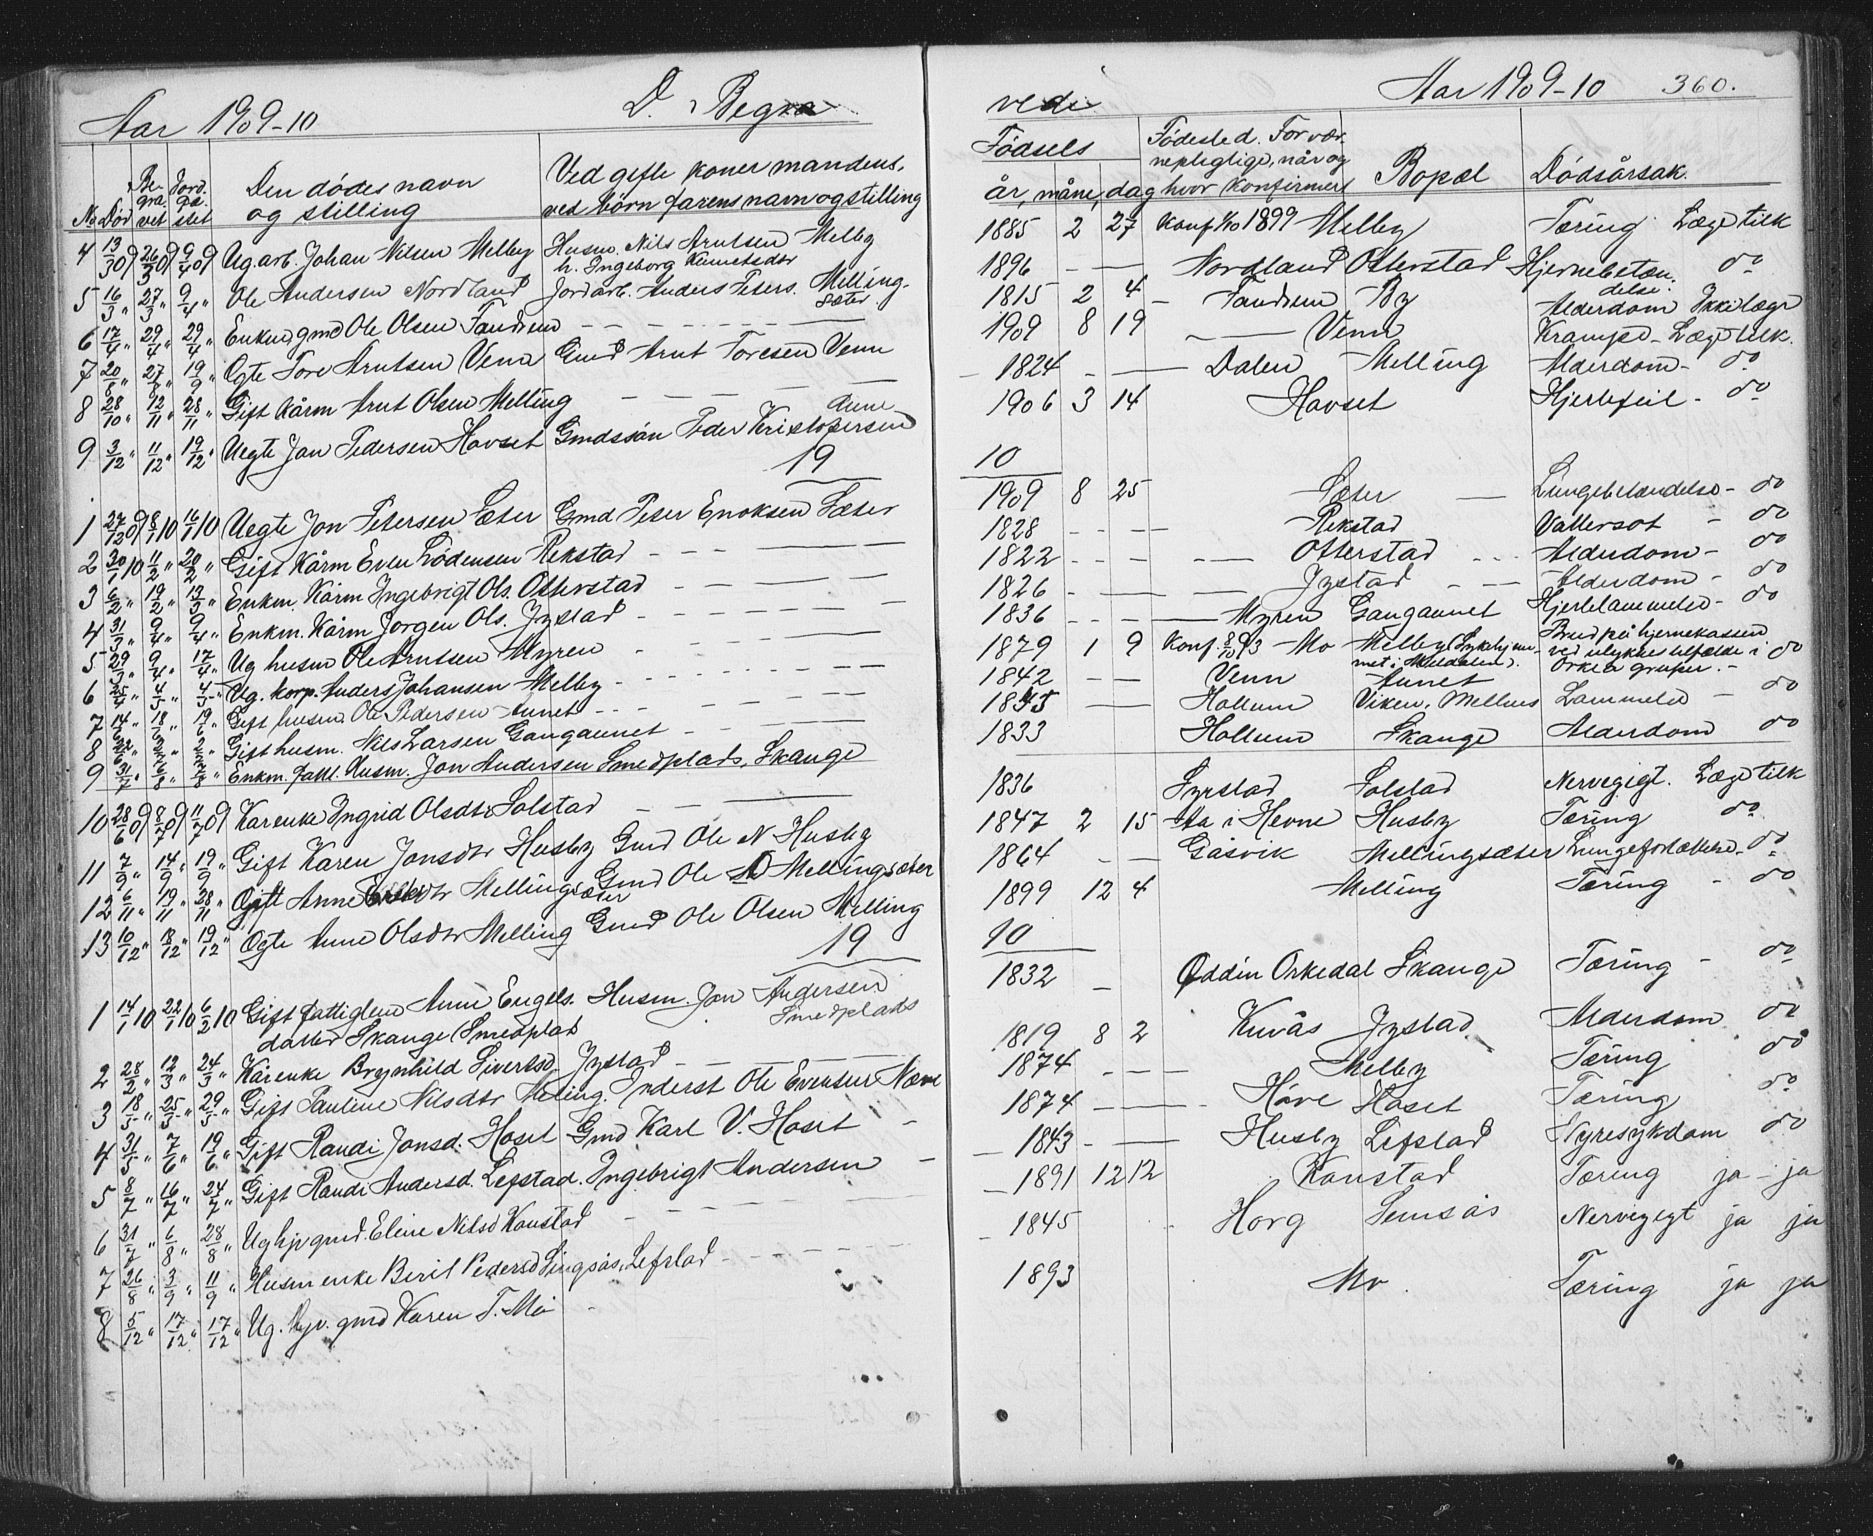 Aar 1909-10
D. Begra
vede
Aar 1909-10
360.
No
Død
Be-
gra-
vet
Jord-
fæ-
stet
Den dødes navn
og stilling
Ved gifte koner mandens,
ved börn farens navn og stilling
Fødsels
år, måne, dag
Födested. For vær-
nepligtige, når og
hvor konfirmert
Bopæl
Dödsårsak.
4 13/3 09 26/3 09 9/4 09 Ug. arb. Johan Nilsen Melby Husm. Nils Arntsen Melby h. Ingeborg 1885 2 27 Konf 1/10 1899 Melby Tæring Læge tilk
5 16/3 " 27/3 " 9/4 " Ole Andersen Nordland Jordarb. Anders Peters. Melling-
sæter 1896 - - Nordland Otterstad Hjernebetæn-
delse. do
6 17/4 " 29/4 " 29/4 " Enkem. gmd Ole Olsen Fandrem 1815 2 4 - Fandrem By Alderdom Ikke læge
7 20/8 " 27/8 " 19/9 " Ogte Tore Arntsen Venn Gmd Arnt Toresen Venn 1909 8 19 Venn Krampe - Læge tilk.
8 28/10 " 12/11 " 28/11 " Gift Kårm Arnt Olsen Melling 1824 - - Dalen Melling Alderdom - do
9 3/12 " 11/12 " 19/12 " Uegte Jan Pedersen Havset Gmdssön Peder Kristofersen Aune 1906 3 14 Havset Hjertefeil - do
19 10
1 27/12 09 8/1 10 16/1 10 Uegte Jon Petersen Sæter Gmd Peter Enoksen Sæter 1909 8 25 Sæter Lungebetændelse - do
2 30/1 10 11/2 " 20/2 " Gift Kårm Even Lodensen Rekstad 1828 - - - Rekstad Vattersot - do
3 6/2 " 19/2 " 13/3 " Enkm. Kårm Ingebrigt Ols. Otterstad 1822 - - - Otterstad - - Alderdom - do
4 31/3 " 9/4 " 9/4 " Enkm. Kårm Jorgen Ols. Jystad 1826 - - - Jystad - - Alderdom - do
5 29/3 " 9/4 " 17/4 " Ug husm Ole Arntsen Myren 1836 - - - Myren Gangaunet Hjertelammelse - do
6 25/4 " 4/5 " 4/5 " Ug. Korp. Anders Johansen Melby 1879 1 9 Konf. 8/10 93 - Mo Melby (Sykehjem-
met i Meldalen). Brud på hjernekassen
ved ulykkes tilfælde i
Orkla gruber. - do
7 14/6 " 18/6 " 19/6 " Gift husm. Ole Pedersen Aunet 1842 - - Venn Aunet
8 Gift husm. Nils Larsen Gangaunet 1835 - - Hollum Viken, Melhus Lammelse - do
9 31/7 " 6/8 " 7/8 " Enkm. fattl. Husm. Jon Andersen Smedplads, Skange 1833 Hollum Skange Alderdom do
10 28/6 09 8/7 09 11/7 09 Kårenke Ingrid Olsdtr Solstad 1836 Syrstad Solstad Nervegigt. Læge tilk
11 7/9 " 14/9 " 19/9 " Gift Karen Jonsdtr Husby Gmd Ole N Husby 1847 2 15 Aa i Hevne Husby Tæring do
12 6/11 " 19/11 " 28/11 " Gift Anne Mellingsæter Gmd Ole Mellingsæter 1864 - - Gåsvik Mellingsæter do
13 10/12 " 18/12 " 19/12 " Ogte Anne Olsdtr Melling Gmd Ole Olsen Melling 1899 12 4 Melling Tæring - do
19 10
1 14/1 10 22/1 10 6/2 10 Gift fattiglem Anne Engels-
datter Skange (Smedplads Husm. Jon Andersen
Smedplads 1832 - Oddin Orkedal Skange Tæring - do
2 28/2 " 12/3 " 24/3 " Kårenke Brynhild Sivertsd. Jystad 1819 8 2 Kuvås Jystad Alderdom do
3 18/5 " 25/5 " 29/5 " Gift Pauline Nilsdtr Melling. Inderst Ole Evensen Næve 1874 - - - Melby Tæring do
4 31/5 " 7/6 " 19/6 " Gift Randi Jonsd. Hoset Gmd Karl V. Hoset 1874 - - Håve Hoset Tæring do
5 8/7 " 16/7 " 24/7 " Gift Randi Andersd. Lefstad. Ingebrigt Andersen 1843 - - Husby Lefstad Nyresykdom do
6 31/7 " 6/8 " 28/8 " Ug hjv gmd. Eline Nilsd Konstad 1891 12 12 Konstad Tæring ja - ja
7 26/8 " 3/9 " 11/9 " Husm enke Beril Pedersd Singsås, Lefstad 1845 Horg Nervegigt ja ja
8 5/12 " 17/12 " 17/12 " Ug. hjv. gmd Karen T. Mo 1893 Mo. Tæring ja ja